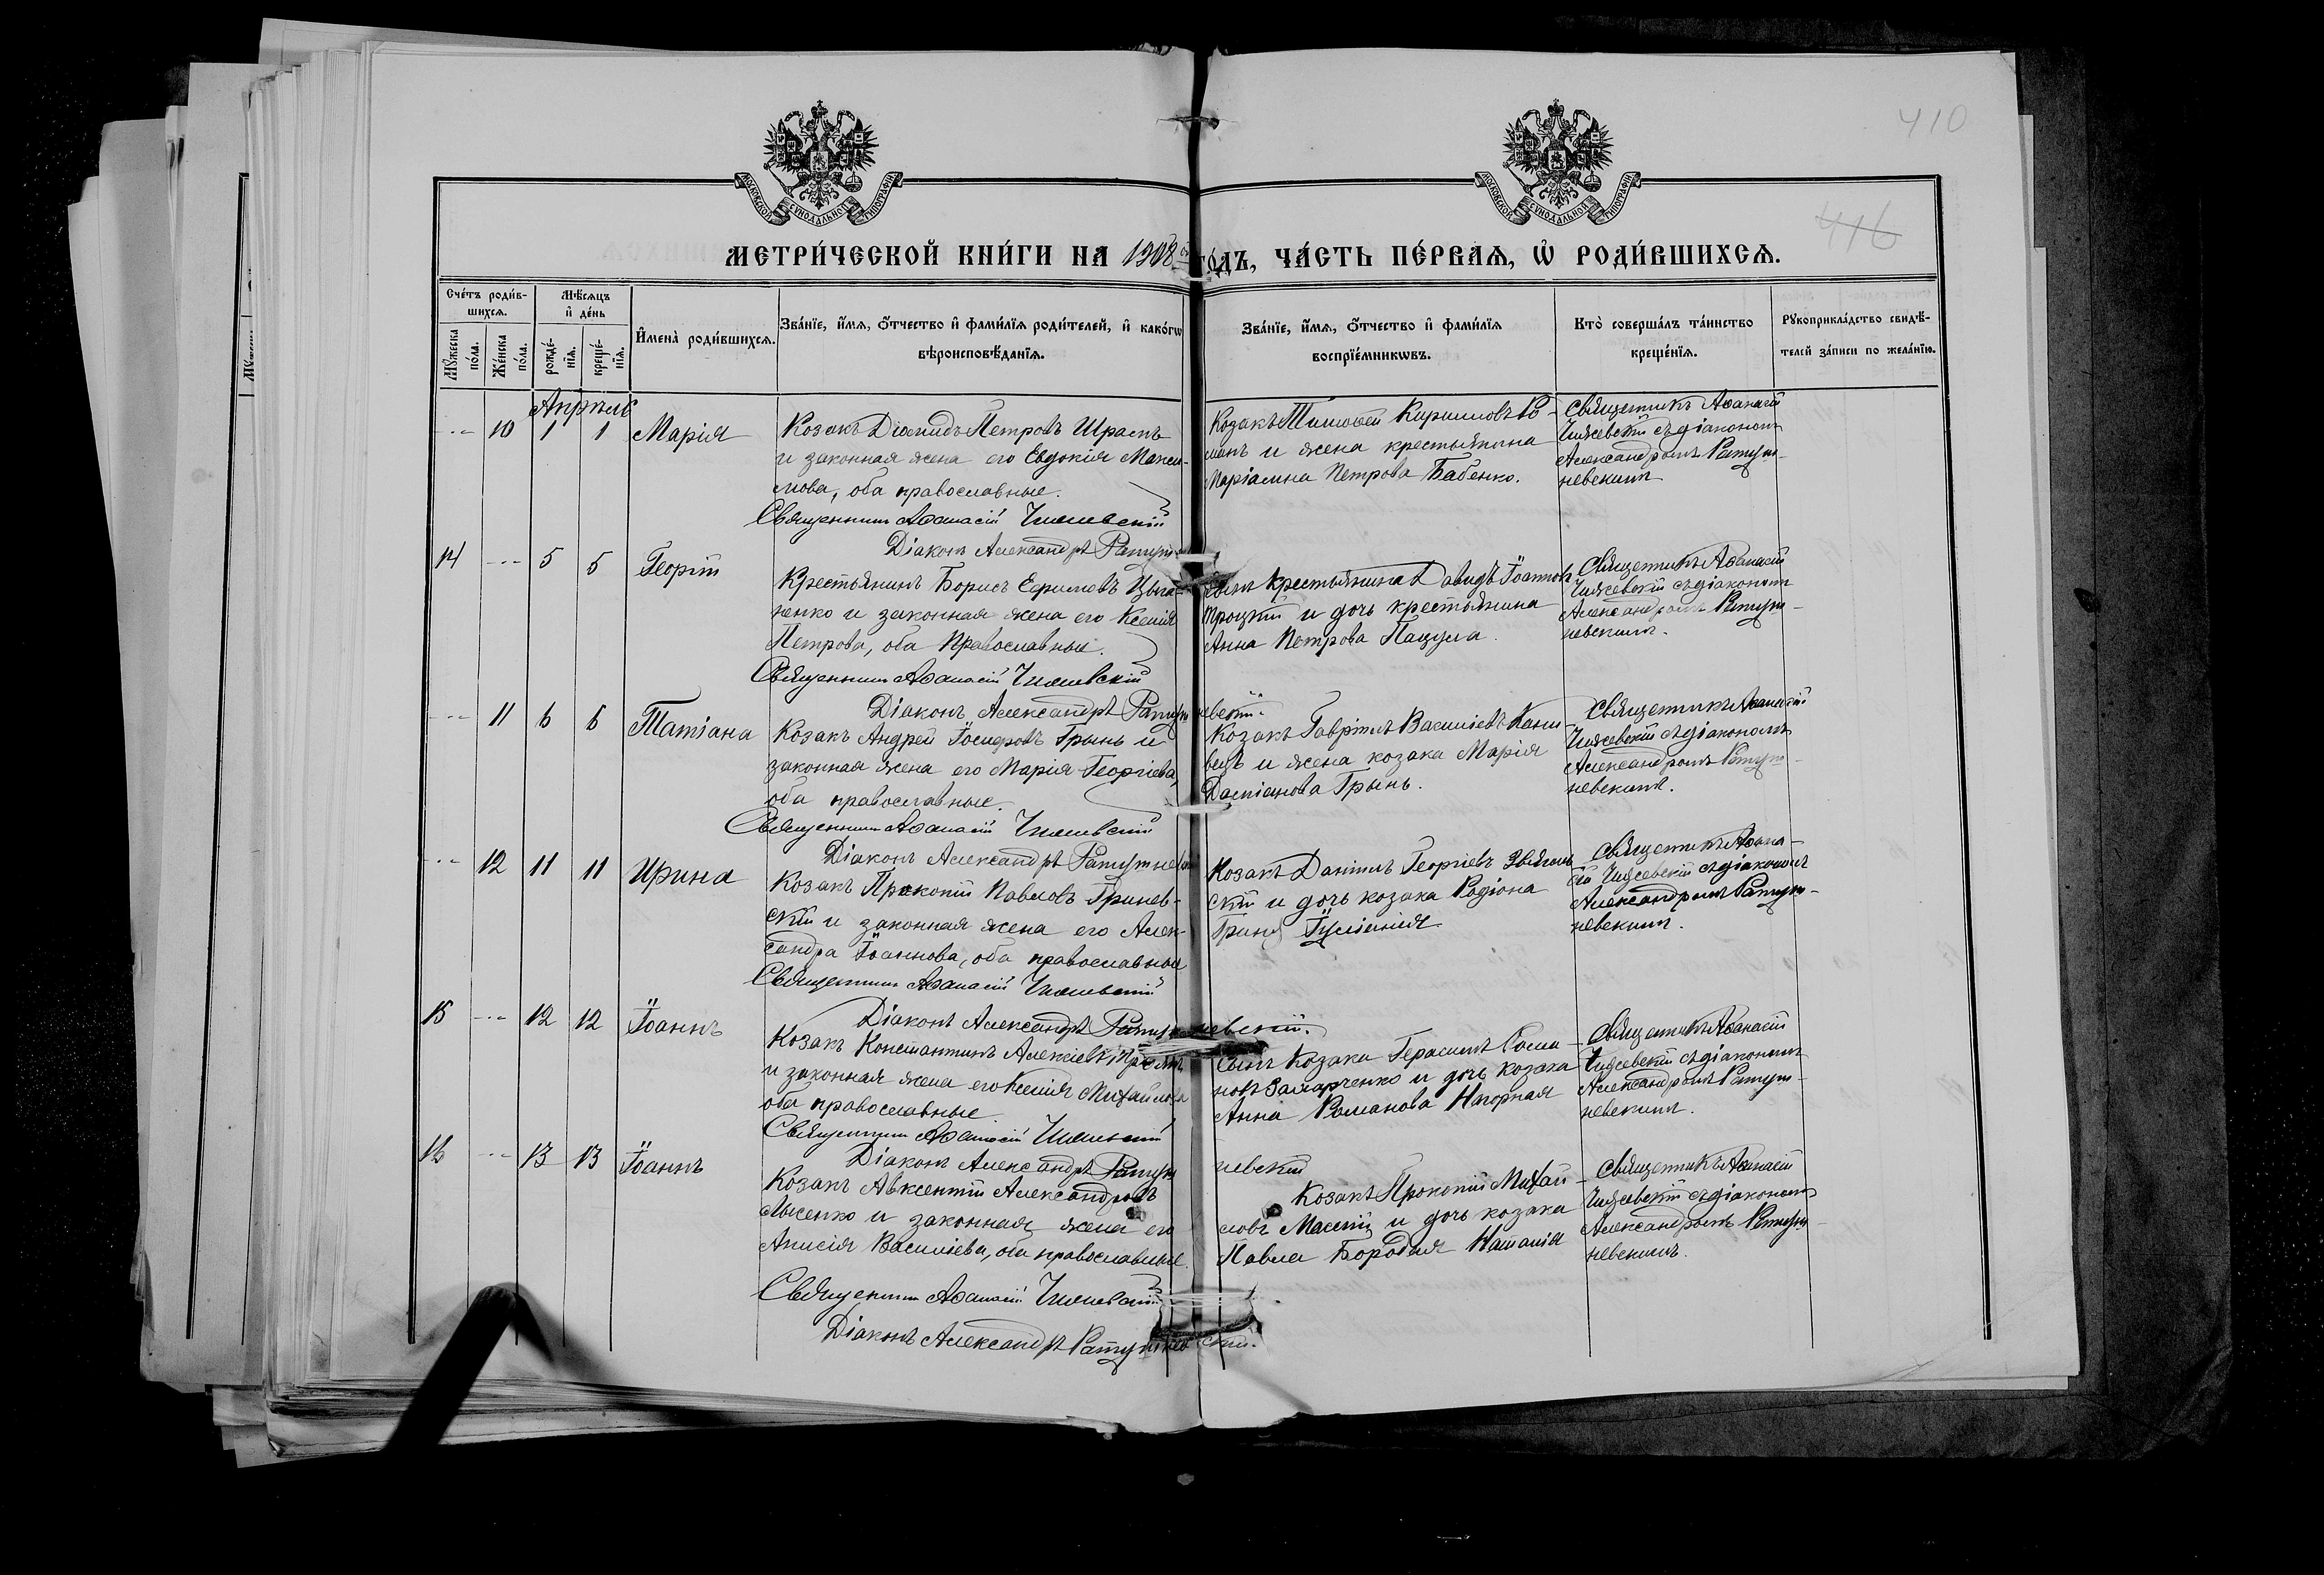 410
416
МОСКОВСКОЙ СУНОДАЛЬНОЙ ТИПОГРАФІИ
МОСКОВСКОЙ СУНОДАЛЬНОЙ ТИПОГРАФІИ
МЕТРИ́ЧЕСКОЙ КНИ́ГИ НА 1908 го́дъ, ЧА́СТЬ ПЕ́РВАѦ, Ѡ҆ РОДИ́ВШИХСѦ.
Сче́тъ роди́в-
шихсѧ.
Мꙋ́жеска по́ла.
Же́нска по́ла.
Мѣ́сѧцъ и҆ де́нь
рожде́-
нїѧ.
креще́-
нїѧ.
И҆мена̀ роди́вшихсѧ.
Зва́нїе, и҆́мѧ, ѻ҆́тчество и҆ фами́лїѧ роди́телей, и҆ како́гѡ
вѣроисповѣ́данїѧ.
Зва́нїе, и҆́мѧ, ѻ҆́тчество и҆ фами́лїѧ
воспрїе́мникѡвъ.
Кто̀ соверша́лъ та́инство
креще́нїѧ.
Рꙋкоприкла́дство свидѣ́-
телей за́писи по жела́нїю.
Апрѣль
10 1 1 Марія
Козакъ Діомидъ Петровъ
и законная жена его Евдокія Макси-
мова, оба православные.
Священникъ Аѳанасій Чижевскій
Діаконъ Александръ Ратуш
Козакъ Тимоѳей Кирилловъ Ро-
манъ и жена крестьянина
Петрова Бабенко.
Священникъ Аѳанасій
Чижевскій съ діакономъ
Александромъ Ратуш-
невскимъ
14 5 5 Георгій
Крестьянинъ Борисъ Ефимовъ Цыга-
ненко и законная жена его Ксенія
Петрова, оба православные.
Священникъ Аѳанасій Чижевскій
Діаконъ Александръ Ратушневскій.
Сынъ крестьянина Давидъ Іоанновъ
Троцкій и дочь крестьянина
Анна Петрова Пацула.
Священникъ Аѳанасій
Чижевскій съ діакономъ
Александромъ Ратуш-
невскимъ.
11 6 6 Татіана
Козакъ Андрей Іосифовъ Грынь и
законная жена его Марія Георгіева,
оба православные.
Священникъ Аѳанасій Чижевскій
Діаконъ Александръ Ратушнев
Козакъ Гавріилъ Василіевъ
и жена козака Марія
Даміанова Грынь.
Священникъ Аѳанасій
Чижевскій съ діакономъ
Александромъ Ратуш-
невскимъ.
12 11 11 Ирина
Козакъ Прокопій Павловъ Гринев-
скій и законная жена его Алек-
сандра Іоаннова, оба православные
Священникъ Аѳанасій Чижевскій
Діаконъ Александръ Ратушневскій.
Козакъ Даніилъ Георгіевъ
скій и дочь козака Родіона
Гриня Іуліанія
Священникъ Аѳана-
сій Чижевскій съ діакономъ
Александромъ Ратуш-
невскимъ.
15 12 12 Іоаннъ
Козакъ Константинъ Алексіевъ
и законная жена его Ксенія Михайлова
оба православные
Священникъ Аѳанасій Чижевскій
Діаконъ Александръ Ратушневскій
Сынъ козака Герасимъ Рома-
новъ и дочь козака
Анна Романова Нагорная
Священникъ Аѳанасій
Чижевскій съ діакономъ
Александромъ Ратуш-
невскимъ.
16 13 13 Іоаннъ
Козакъ Авксентій Александровъ
Лысенко и законная жена его
Анисія Василіева, оба православные.
Священникъ Аѳанасій Чижевскій
Діаконъ Александръ Ратушневскій.
Козакъ Прокопій Михай-
ловъ и дочь козака
Павла Бородая Наталія
Священникъ Аѳанасій
Чижевскій съ діакономъ
Александромъ Ратуш-
невскимъ.